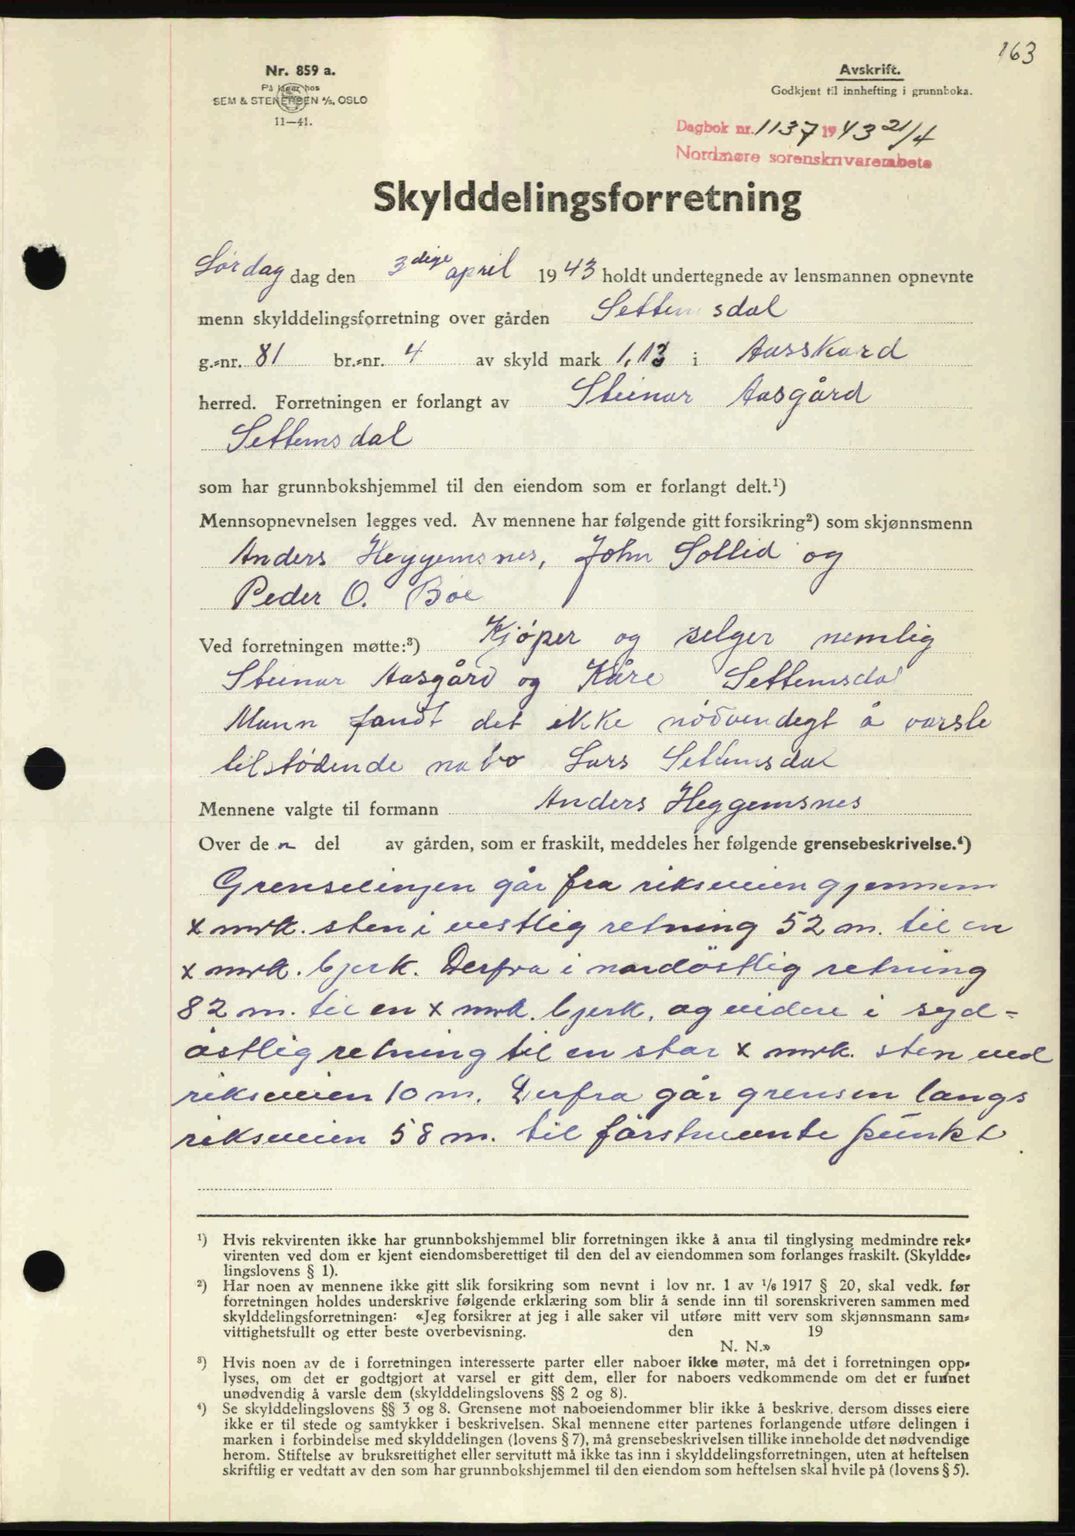 163
Nr. 859 a.
På lager hos
SEM & STENERSEN A/S, OSLO
11—41.
Avskrift.
Godkjent til innhefting i grunnboka.
Dagbok nr. 1137 1943 21/4
Nordmøre sorenskrivarembete
Skylddelingsforretning
Lördag dag den 3dige april 1943 holdt undertegnede av lensmannen opnevnte
menn skylddelingsforretning over gården Settemsdal
g.-nr. 81 br.-nr. 4 av skyld mark 1,13 i Aasskard
herred. Forretningen er forlangt av Steinar Aasgård
Settemsdal
som har grunnbokshjemmel til den eiendom som er forlangt delt.¹)
Mennsopnevnelsen legges ved. Av mennene har følgende gitt forsikring²) som skjønnsmenn
Anders Heggemsnes, John Sollid og
Peder O. Böe
Ved forretningen møtte:³) Kjöper og selger nemlig
Steinar Aasgård og Kåre Settemsdal
Mann fandt det ikke nödvendegt å varsle
tilstödende nabo Lars Settemsdal
Mennene valgte til formann Anders Heggemsnes
Over de n del av gården, som er fraskilt, meddeles her følgende grensebeskrivelse.⁴)
Grenselinjen går fra riksveien gjennem
x mrk. sten i vestlig retning 52 m. til en
x mrk. bjerk. Derfra i nordöstlig retning
82 m. til en x mrk. bjerk, og videre i syd-
östlig retning til en stor x mrk. sten ved
riksveien 10 m. Derfra går grensen langs
riksveien 58 m. til förstnevnte punkt.
¹) Hvis rekvirenten ikke har grunnbokshjemmel blir forretningen ikke å anta til tinglysing medmindre rek-
virenten ved dom er kjent eiendomsberettiget til den del av eiendommen som forlanges fraskilt. (Skyldde-
lingslovens § 1).
²) Har noen av mennene ikke gitt slik forsikring som nevnt i lov nr. 1 av 1/6 1917 § 20, skal vedk. før
forretningen holdes underskrive følgende erklæring som blir å sende inn til sorenskriveren sammen med
skylddelingsforretningen: «Jeg forsikrer at jeg i alle saker vil utføre mitt verv som skjønnsmann sam-
vittighetsfullt og etter beste overbevisning. den 19
N. N.»
³) Hvis noen av de i forretningen interesserte parter eller naboer ikke møter, må det i forretningen opp-
lyses, om det er godtgjort at varsel er gitt dem, eller for naboers vedkommende om det er funnet
unødvendig å varsle dem (skylddelingslovens §§ 2 og 8).
⁴) Se skylddelingslovens §§ 3 og 8. Grensene mot naboeiendommer blir ikke å beskrive, dersom disses eiere
ikke er til stede og samtykker i beskrivelsen. Skal mennene etter partenes forlangende utføre delingen i
marken i forbindelse med skylddelingen (lovens § 7), må grensebeskrivelsen tillike inneholde det nødvendige
herom. Stiftelse av bruksrettighet eller servitutt må ikke tas inn i skylddelingsforretningen, uten at heftelsen
skriftlig er vedtatt av den som har grunnbokshjemmel til den eiendom som heftelsen skal hvile på (lovens § 5).